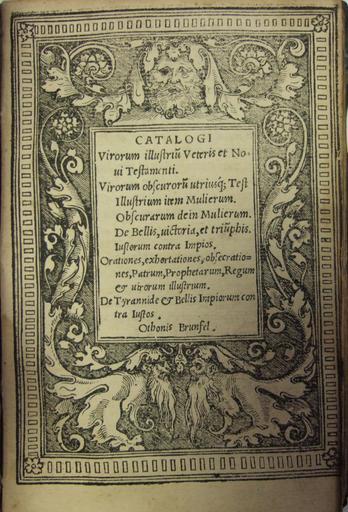 CATALOGI
Virorum illustriũ Veteris et No-
ui Testamenti.
Virorum obscurorũ utriusq; Test
Illustrium item Mulierum.
Obscurarum dein Mulierum.
De Bellis, uictoria, et triũphis.
Iustorum contra Impios.
Orationes, exhortationes, obsecratio-
nes, Patrum, Prophetarum, Regum
& uirorum illustrium.
De Tyrannide & Bellis Impiorum con
tra Iustos.
Othonis Brunfel.